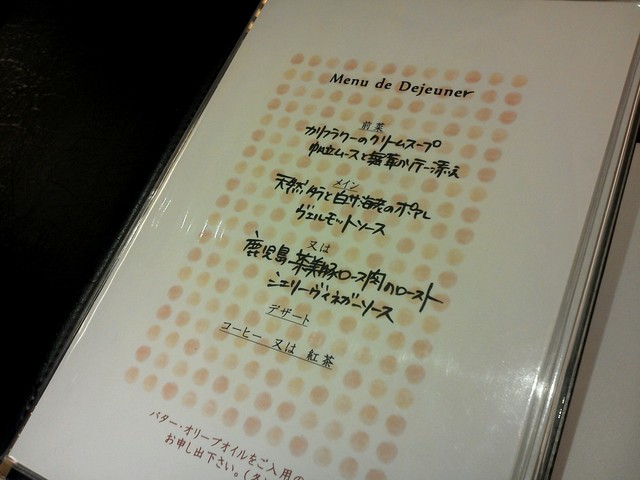 Menu de Dejeuner
前菜
カリフラワーのクリームスープ
帆立ムースと 添え
メイン
天然タラと白サ海老のポアレ
ヴェルモットソース
又は
鹿児島 茶美豚ロース肉のロースト
シェリーヴィネガーソース
デザート
コーヒー 又は 紅茶
バター・オリーブオイルをご入用の
お申し出下さい。